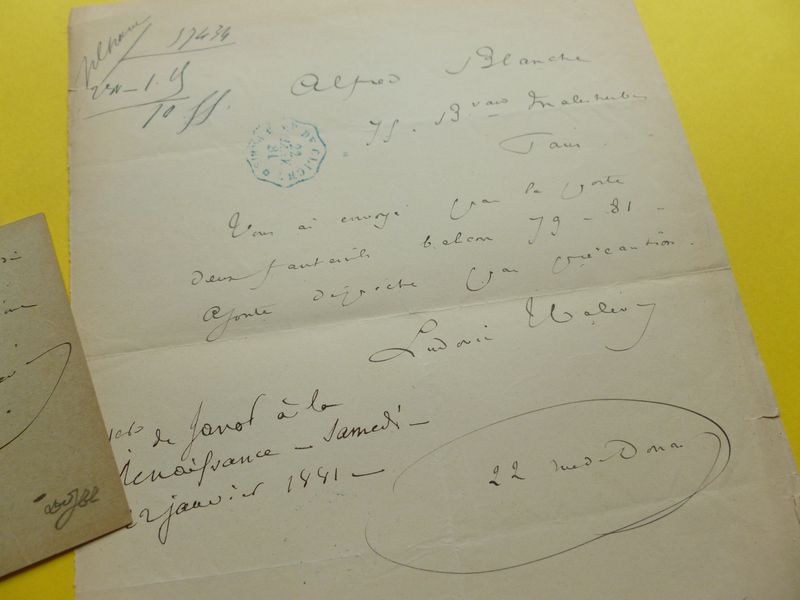 57434
Alfred Blanche
75. Bvard Malesherbes
Paris.
Vous ai envoyé par la poste
deux fauteuils balcon 79 - 81 -
Ajoute dépêche par précaution.
Ludovic Halévy
de Janot à la
Renaissance - Samedi -
janvier 1881 -
22 rue de Douai